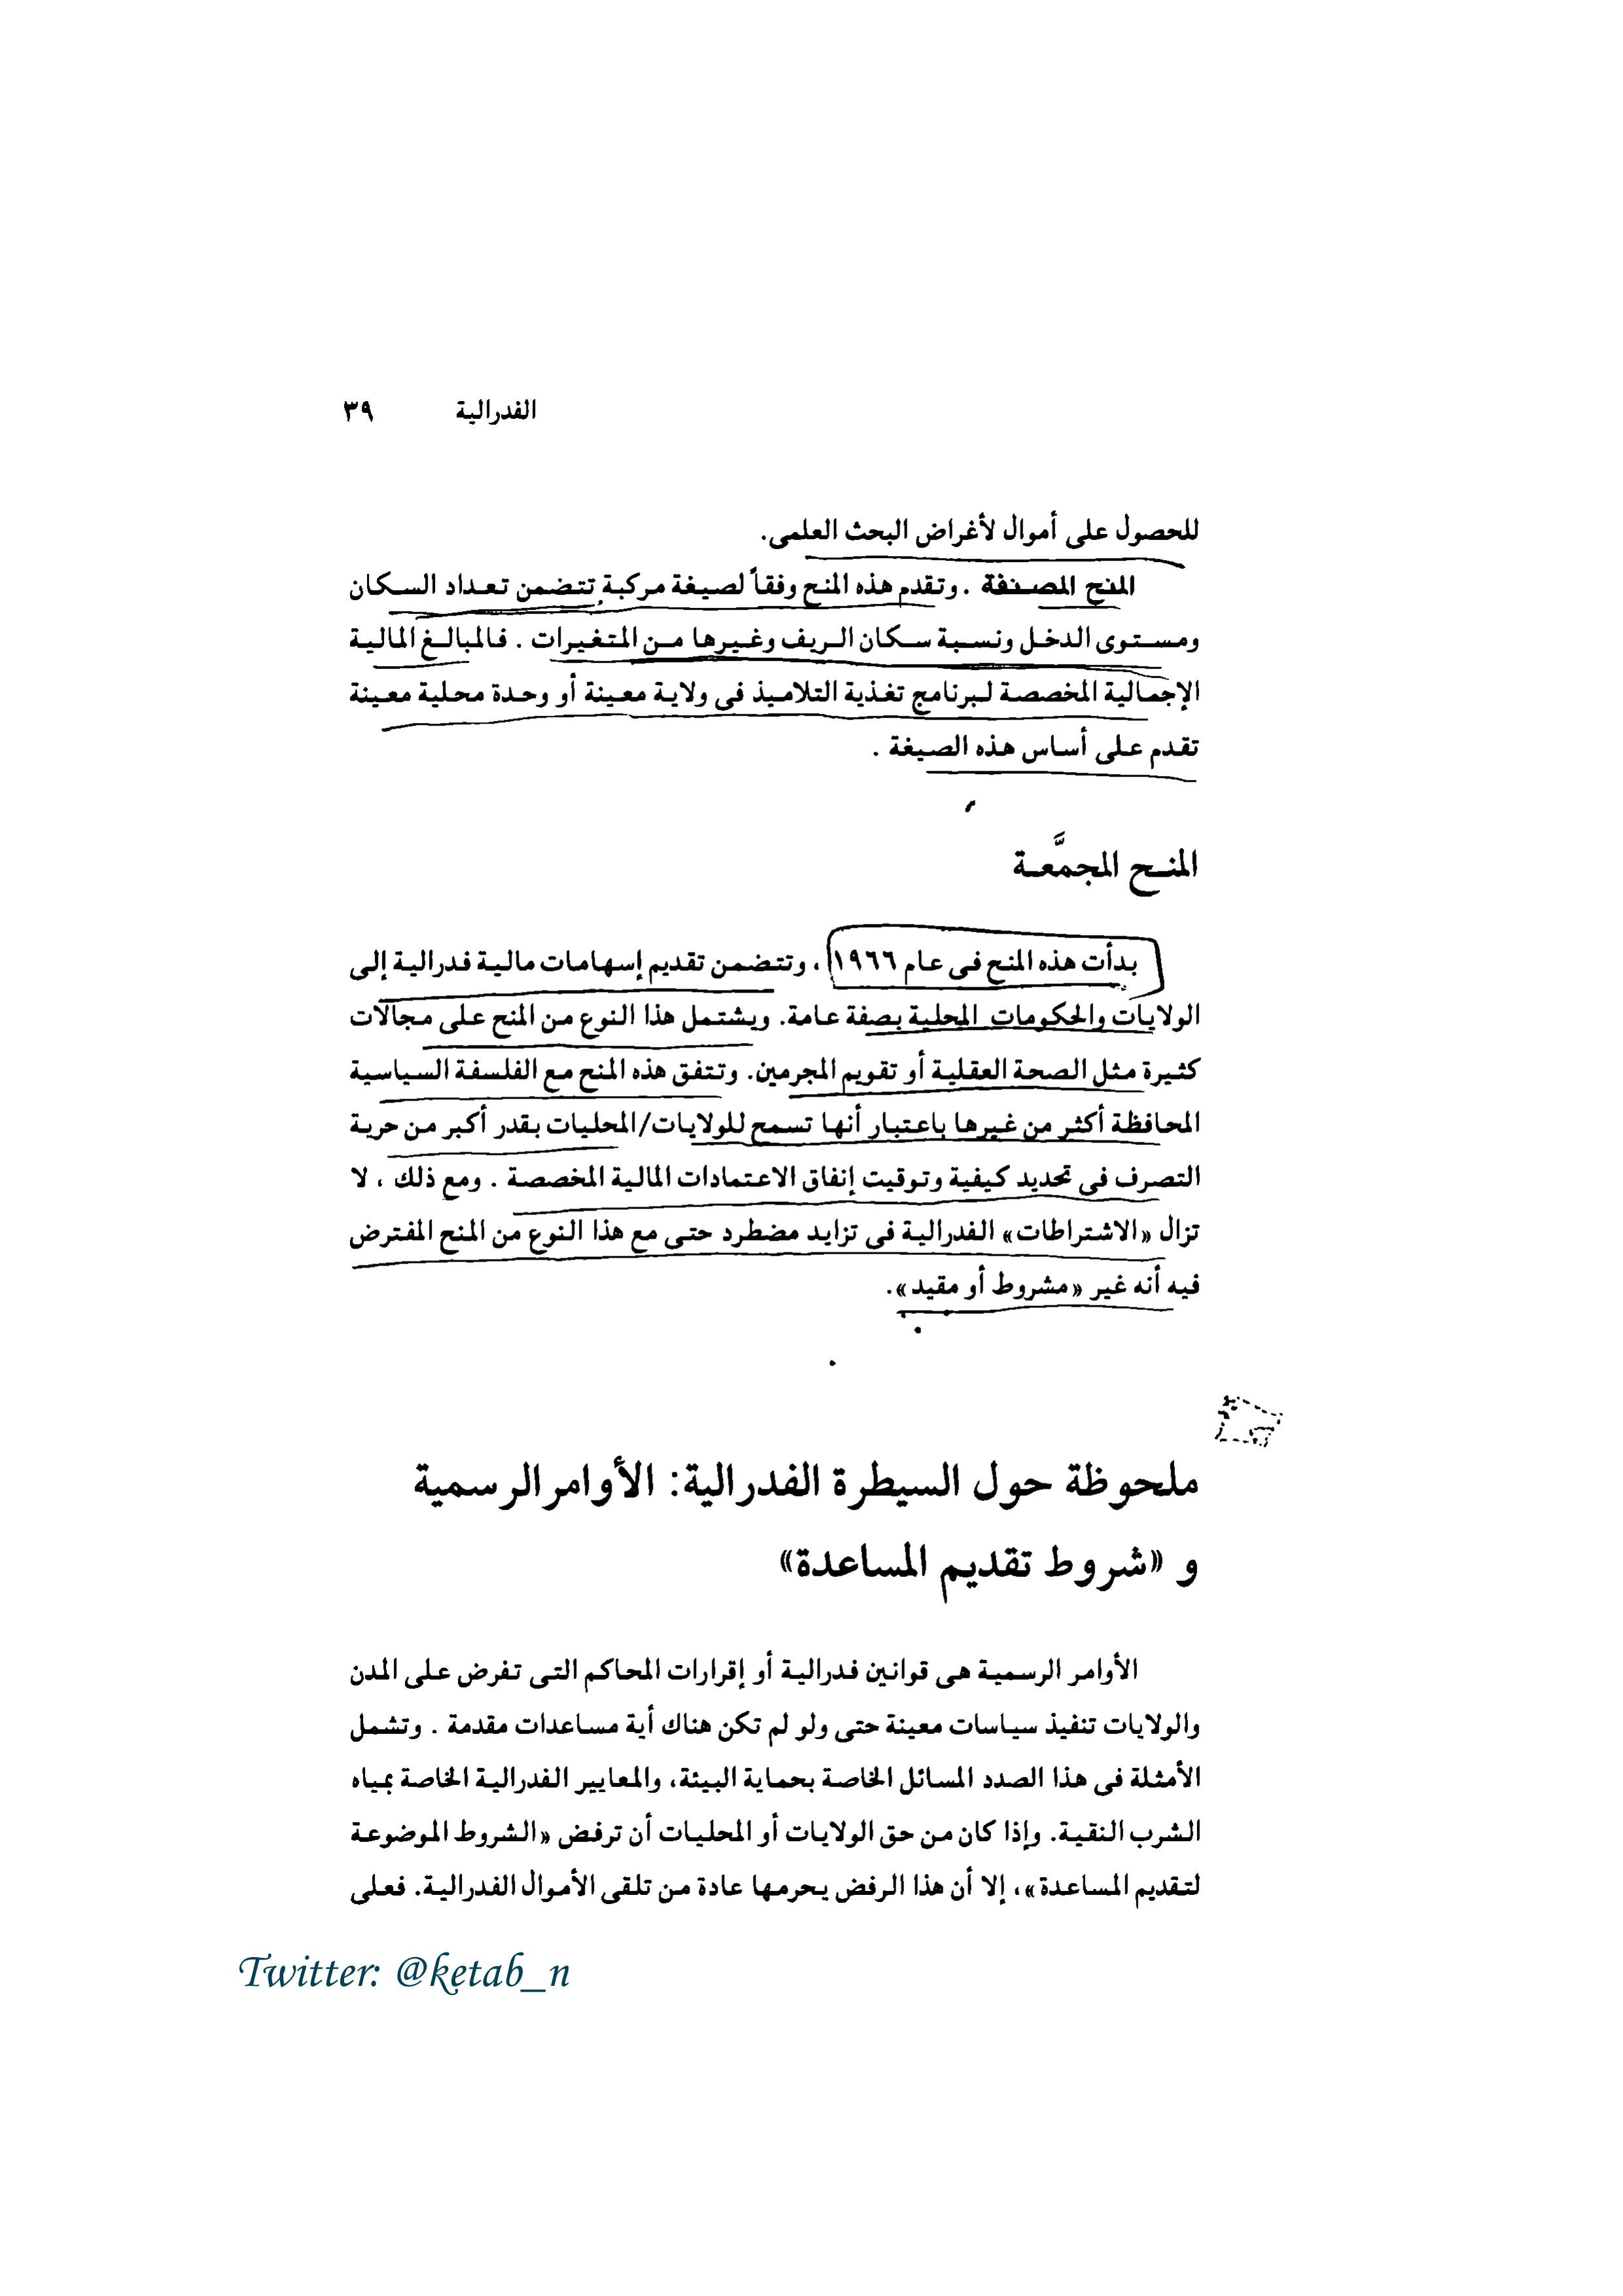 الفدرالية ٣٩
للحصول على أموال لأغراض البحث العلمى.
المنح المصنفة . وتقدم هذه المنح وفقاً لصيغة مركبة تتضمن تعداد السكان
ومستوى الدخل ونسبة سكان الريف وغيرها من المتغيرات . فالمبالغ المالية
الإجمالية المخصصة لبرنامج تغذية التلاميذ فى ولاية معينة أو وحدة محلية معينة
تقدم على أساس هذه الصيغة .
المنح المجمَّعة
بدأت هذه المنح فى عام ١٩٦٦ ، وتتضمن تقديم إسهامات مالية فدرالية إلى
الولايات والحكومات المحلية بصفة عامة. ويشتمل هذا النوع من المنح على مجالات
كثيرة مثل الصحة العقلية أو تقويم المجرمين. وتتفق هذه المنح مع الفلسفة السياسية
المحافظة أكثر من غيرها باعتبار أنها تسمح للولايات/المحليات بقدر أكبر من حرية
التصرف فى تحديد كيفية وتوقيت إنفاق الاعتمادات المالية المخصصة . ومع ذلك ، لا
تزال «الاشتراطات» الفدرالية فى تزايد مضطرد حتى مع هذا النوع من المنح المفترض
فيه أنه غير «مشروط أو مقيد».
ملحوظة حول السيطرة الفدرالية: الأوامر الرسمية
و «شروط تقديم المساعدة»
الأوامر الرسمية هى قوانين فدرالية أو إقرارات المحاكم التى تفرض على المدن
والولايات تنفيذ سياسات معينة حتى ولو لم تكن هناك أية مساعدات مقدمة . وتشمل
الأمثلة فى هذا الصدد المسائل الخاصة بحماية البيئة، والمعايير الفدرالية الخاصة بمياه
الشرب النقية. وإذا كان من حق الولايات أو المحليات أن ترفض «الشروط الموضوعة
لتقديم المساعدة»، إلا أن هذا الرفض يحرمها عادة من تلقى الأموال الفدرالية. فعلى
Twitter: @ketab_n